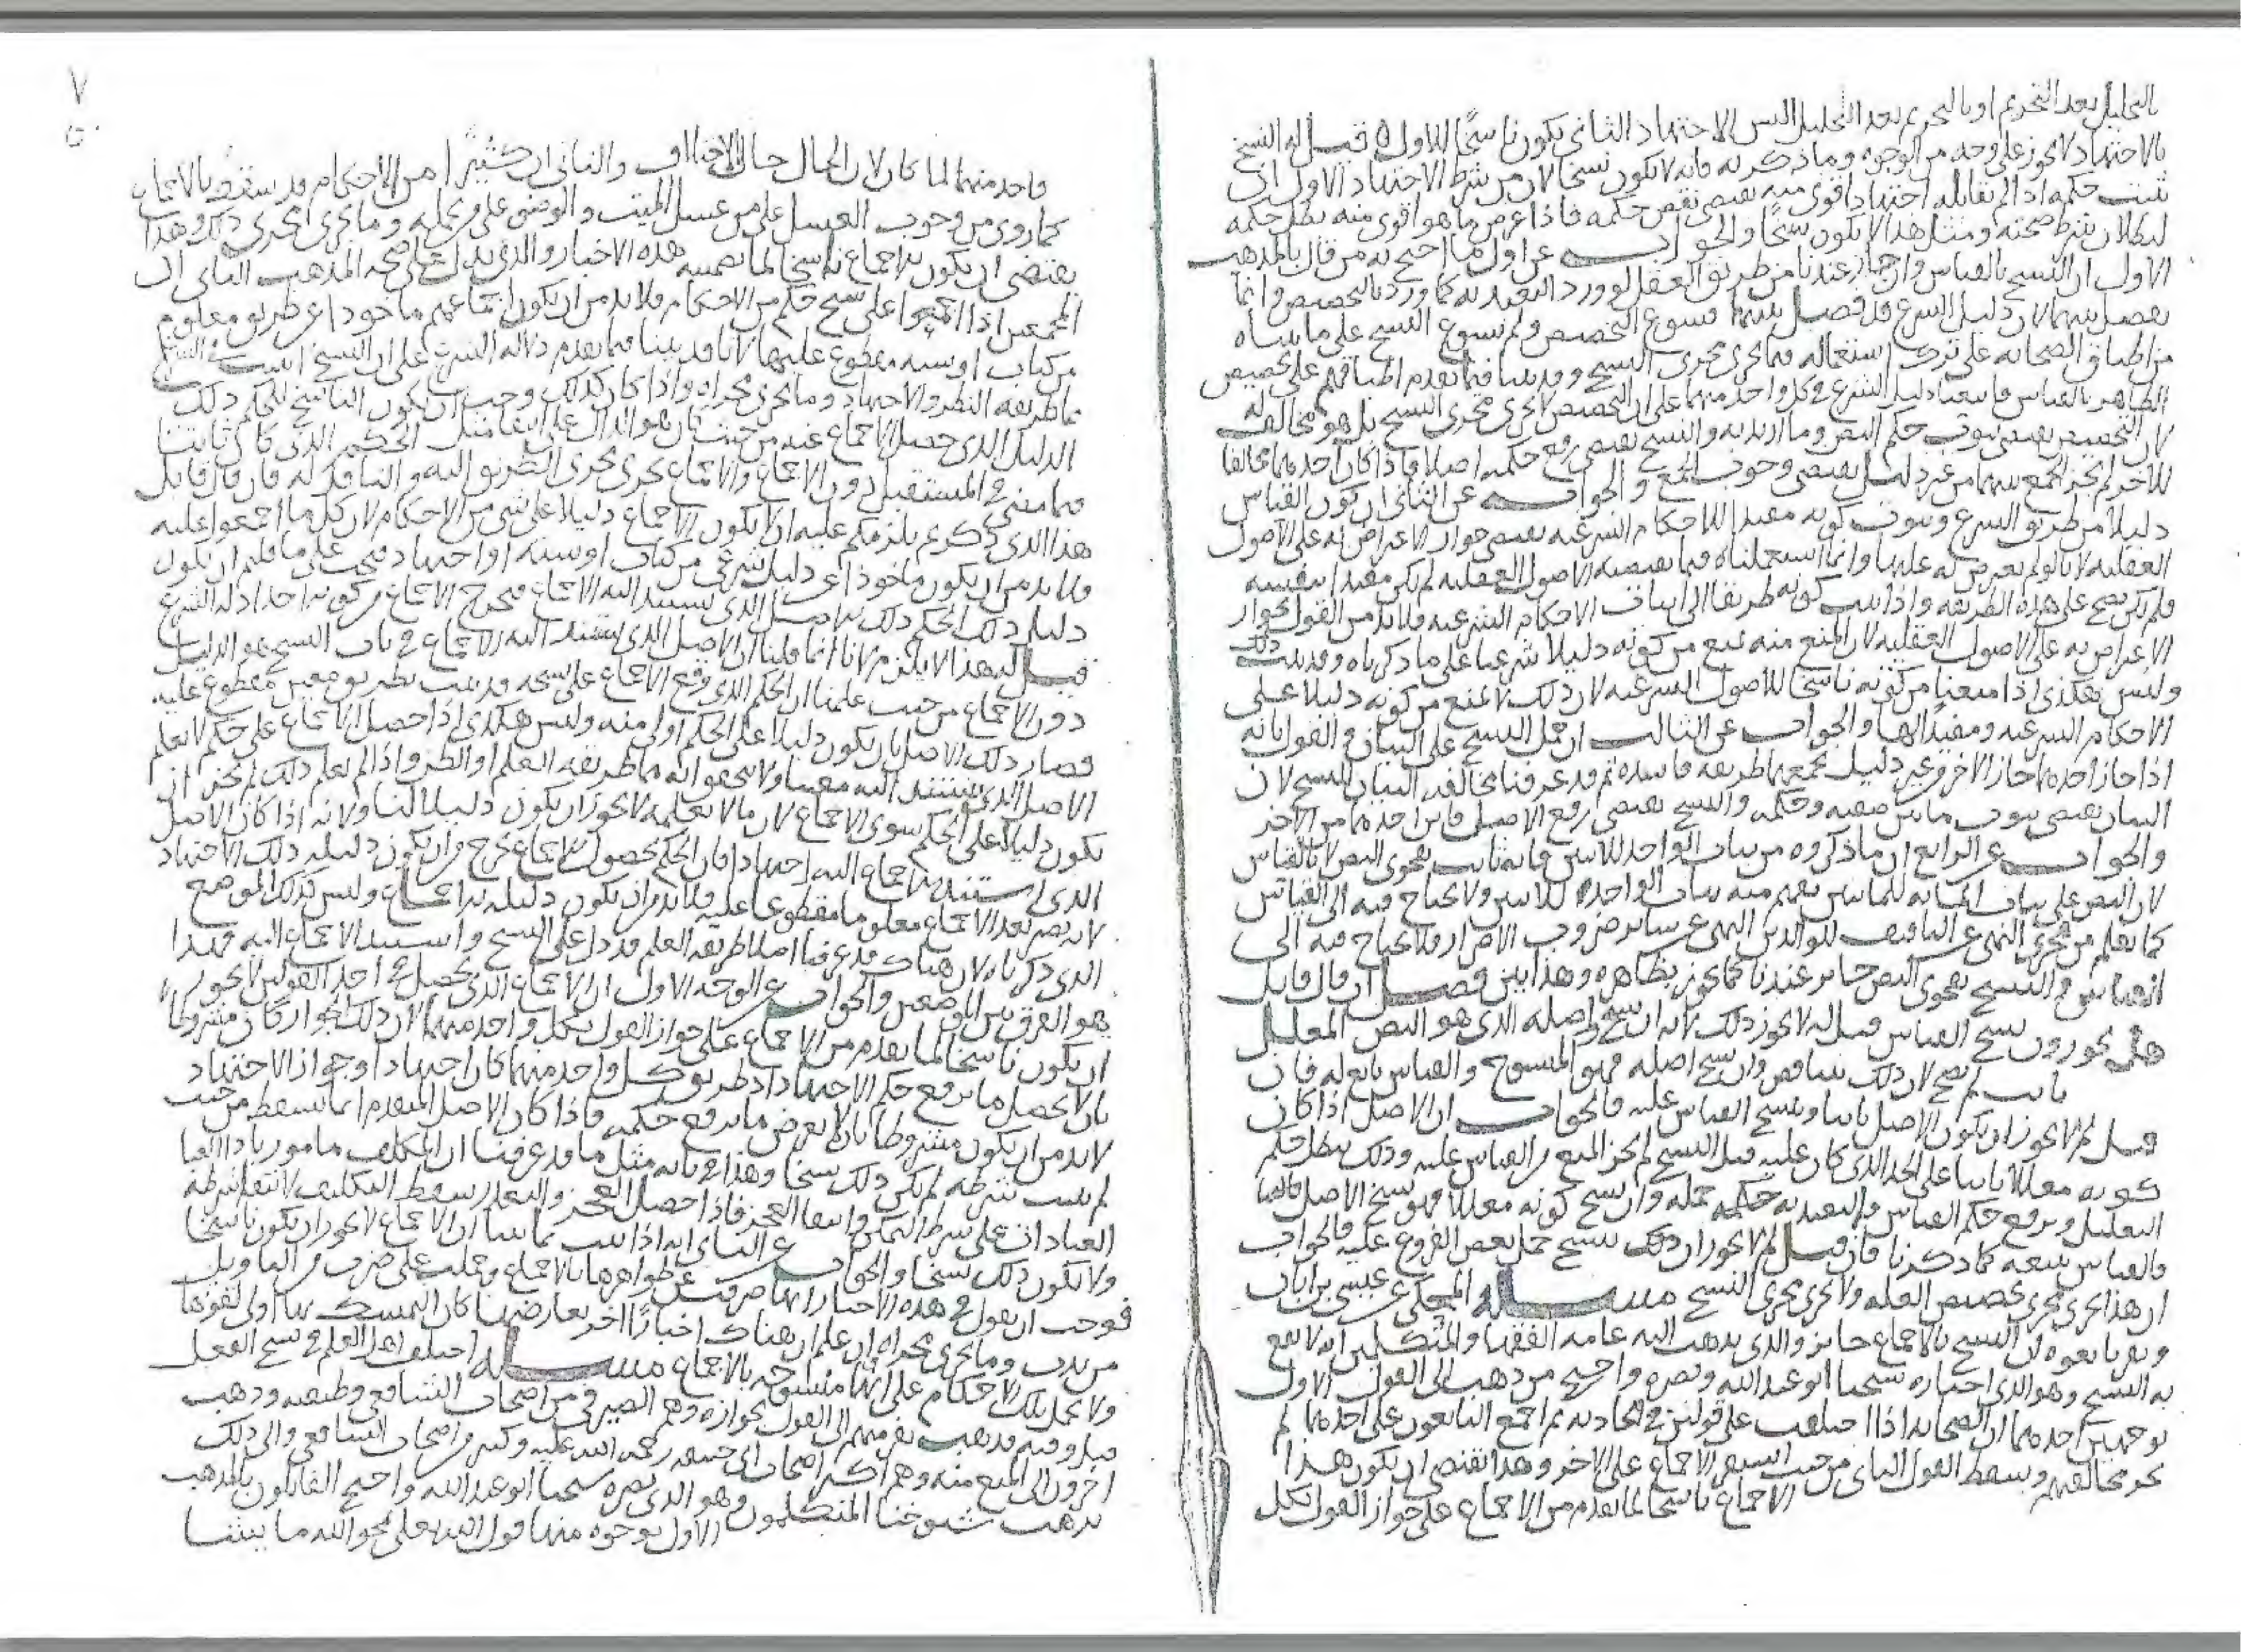 بالتحليل بعد التحريم او بالتحريم بعد التحليل اليس الاجتهاد الثانى يكون ناسخًا للاول قيل له النسخ
بالاجتهاد لا يجوز على وجه من الوجوه وما ذكرته فانه لا يكون نسخا لان من شرط الاجتهاد الاول ان
يثبت حكمه اذا لم يقابله اجتهاد اقوى منه يقتضى نقض حكمه فاذا عرض ما هو اقوى منه بطل حكمه
لبطلان شرط صحته ومثل هذا لا يكون نسخًا والجواب عن اول ما احتج به من قال بالمذهب
الاول ان النسخ بالقياس وان جاز عندنا من طريق العقل لو ورد التعبد به كما ورد بالتخصيص وانما
يفصل بينهما لان دليل الشرع قد فصل بينهما فسوغ التخصيص ولم يسوغ النسخ على ما بيناه
من اطباق الصحابه على ترك استعماله فيما يجرى مجرى النسخ وقد بينا فيما تقدم اطباقهم على تخصيص
الظاهر بالقياس فاتبعنا دليل الشرع فى كل واحد منهما على ان التخصيص لا يجرى مجرى النسخ بل هو مخالف له
لان التخصيص يقتضى ثبوت حكم النص وما اريد به والنسخ يقتضى رفع حكمه اصلا فاذا كان احدهما مخالفا
للاخر لم يجز الجمع بينهما من غير دليل يقتضى وجوب الجمع والجواب عن الثانى ان كون القياس
دليلا من طريق الشرع وثبوت كونه مفيدا للاحكام الشرعيه يقتضى جواز الاعتراض به على الاصول
العقليه لانا لو لم نعترض به عليها وانما استعملناه فيما تقتضيه الاصول العقليه لم يكن مفيدا بنفسه
ولم يكن يصح على هذه الطريقه واذا ثبت كونه طريقا الى اثبات الاحكام الشرعيه فلا بد من القول بجواز
الاعتراض به على الاصول العقليه لان المنع منه يمنع من كونه دليلا شرعيا على ما ذكرناه وقد ثبت ذلك
وليس هكذى اذا منعنا من كونه ناسخا للاصول الشرعيه لان ذلك لا يمنع من كونه دليلا على
الاحكام الشرعيه ومفيدًا لها والجواب عن الثالث ان حمل النسخ على البيان والقول بانه
اذا جاز احدهما جاز الاخر من غير دليل يجمعهما طريقه فاسده ثم قد عرفنا مخالفه البيان للنسخ لان
البيان يقتضى ثبوت ما بين صفته وحكمه والنسخ يقتضى رفع الاصل فاين احدهما من الاخر
والجواب عن الرابع ان ما ذكروه من ثبات الواحد للاثنين فانه ثابت بفحوى النص لا بالقياس
لان النص على ثبات المايه للمايتين يفهم منه ثبات الواحد للاثنين ولا يحتاج فيه الى القياس
كما يعلم من فحوى النهى عن التافيف للوالدين النهى عن سائر ضروب الاضرار ولا يحتاج فيه الى
القياس والنسخ بفحوى النص جائز عندنا كما يجوز بظاهره وهذا بين فصل ان قال قايل
هل تجوزون نسخ القياس قيل له لا يجوز ذلك لانه ان نسخ واصله الذى هو النص المعلل
ثابت لم يصح لان ذلك يتناقض وان نسخ اصله فهو المنسوخ والقياس تابع له فان
قيل لم لا يجوز ان يكون الاصل ثابتا وينسخ القياس عليه فالجواب ان الاصل اذا كان
كونه معللا ثابتا على الحد الذى كان عليه قبل النسخ لم يجز المنع من القياس عليه وذلك يبطل حكم
التعليل ويرفع حكم القياس والتعبد به حكمه جمله وان نسخ كونه معللا فهو نسخ الاصل
والقياس يتبعه كما ذكرنا فان قيل لم لا يجوز ان ذلك ينسخ حمل بعض الفروع عليه فالجواب
ان هذا يجرى مجرى تخصيص العله ولا يجرى مجرى النسخ مسئله المحكى عن عيسى بن ابان
ان النسخ بالاجماع جائز والذى يذهب اليه عامه الفقها والمتكلمين انه لا يقع
به النسخ وهو الذى اختاره شيخنا ابو عبد الله ونصره واحتج من ذهب الى القول الاول
بوجهين احدهما ان الصحابه اذا اختلفت على قولين فى الحادثه ثم اجمع التابعون على احدهما لم
يجز مخالفتهم ويسقط القول الثانى من حيث استقر الاجماع على الاخر وهذا يقتضى ان يكون هذا
الاجماع ناسخا لما تقدم من الاجماع على جواز القول بكل
٧
واحد منهما لما كان لان الحال حال الاختلاف والثانى ان كثيرًا من الاحكام قد سقط بالاجماع
كما روى من وجوب الغسل على من غسل الميت والوضو على من حمله وما يجرى مجرى ذلك وهذا
يقتضى ان يكون الاجماع ناسخا لما تضمنه هذه الاخبار والذى يدل على صحه المذهب الثانى ان
المجمعين اذا اجمعوا على نسخ حكم من الاحكام فلا بد من ان يكون اجماعهم ماخوذا عن طريق معلوم
من كتاب او سنه مقطوع عليها لانا قد بينا فيما تقدم دلاله الشرع على ان النسخ
بما طريقه النظر والاجتهاد وما يجرى مجراه واذا كان كذلك وجب ان يكون الناسخ للحكم ذلك
الدليل الذى حصل الاجماع عنه من حيث كان هو الدال على انتفا مثل الحكم الذى كان ثابتا
فيما مضى فى المستقبل دون الاجماع والاجماع يجرى مجرى الطريق اليه والناقل له فان قال قايل
هذا الذى ذكرتم يلزمكم عليه ان لا يكون الاجماع دليلا على شى من الاحكام لان كل ما اجمعوا عليه
فلا بد من ان يكون ماخوذا عن دليل شرعى من كتاب او سنه او اجتهاد فيجب على ما قلتم ان يكون
دليل ذلك الحكم ذلك الاصل الذى يستند اليه الاجماع فيخرج الاجماع من كونه احد ادله الشرع
قيل له هذا لا يلزم لانا انما قلنا ان الاصل الذى يستند اليه الاجماع فى باب النسخ هو الدليل
دون الاجماع من حيث علمنا ان الحكم الذى وقع الاجماع على نسخه قد ثبت بطريق معين مقطوع عليه
فصار ذلك الاصل بان يكون دليلا على الحكم اولى منه وليس هكذى اذا حصل الاجماع على حكم لا نعلم
الاصل الذى يستند اليه معينا ولا نتحقق انه مما طريقه العلم او الظن واذا لم نعلم ذلك لم يجز ان
يكون دليلا على الحكم سوى الاجماع لان ما لا نعلمه لا يجوز ان يكون دليلا لنا ولانه اذا كان الاصل
الذى استند الاجماع اليه اجتهادا فان الحكم بحصول الاجماع يخرج من ان يكون دليله ذلك الاجتهاد
لانه يصير بعد الاجماع معلوما مقطوعا عليه فلا بد من ان يكون دليله الاجماع وليس كذلك الموضع
الذى ذكرناه لان هناك قد عرفنا اصلا طريقه العلم قد دل على النسخ واستند الاجماع اليه فهذا
هو الفرق بين الموضعين والجواب عن الوجه الاول ان الاجماع الذى يحصل على احد القولين لا يجوز
ان يكون ناسخا لما تقدم من الاجماع على جواز القول بكل واحد منهما لان ذلك الجواز كان مشروطا
بان لا يحصل ما يرفع حكم الاجتهاد اذ طريق كل واحد منهما كان اجتهادا وجواز الاجتهاد
لا بد من ان يكون مشروطا بان لا يعرض ما يرفع حكمه فاذا كان الاصل المتقدم انما يسقط من حيث
لم يثبت شرطه لم يكن ذلك نسخا وهذا فى بابه مثل ما قد عرفنا ان المكلف مامور باداء
العبادات على شرط التمكن وانتفا العجز فاذا حصل العجز والتعذر سقط التكليف لانتفا شرطه
ولا يكون ذلك نسخا والجواب عن الثانى انه اذا ثبت بما بينا ان الاجماع لا يجوز ان يكون ناسخا
فوجب ان نقول فى هذه الاخبار انها صرفت عن ظواهرها بالاجماع وحملت على ضرب من التاويل
من ندب وما يجرى مجراه او علم ان هناك اخبارًا اخر تعارضها كان التمسك بها اولى لقوتها
ولا يحمل تلك الاحكام على انها منسوخه بالاجماع مسئله اختلف اهل العلم فى نسخ الفعل
قبل وقته فذهب نفر منهم الى القول بجوازه وهم الصيرفى من اصحاب الشافعى وطبقته وذهب
اخرون الى المنع منه وهم اكثر اصحاب ابى حنيفه رحمه الله عليه وكثير من اصحاب الشافعى والى ذلك
يذهب شيوخنا المتكلمون وهو الذى نصره شيخنا ابو عبد الله واحتج القايلون بالمذهب
الاول بوجوه منها قول الله تعالى يمحو الله ما يشا